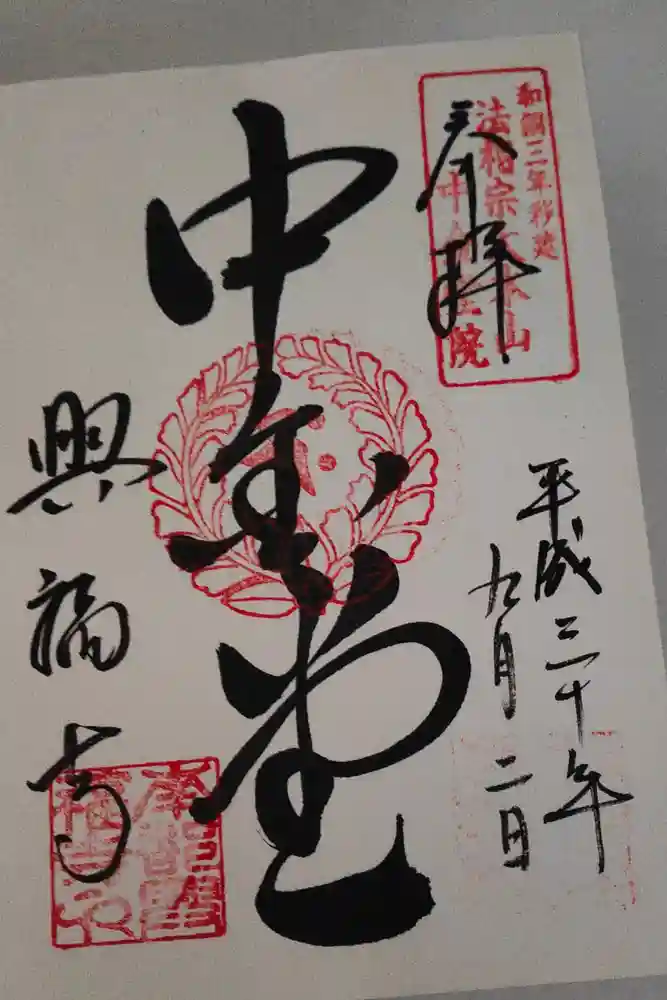 和銅三年移建
法相宗大本山
中金堂院
奉拝
平成三十年
九月二日
中金堂
興福寺